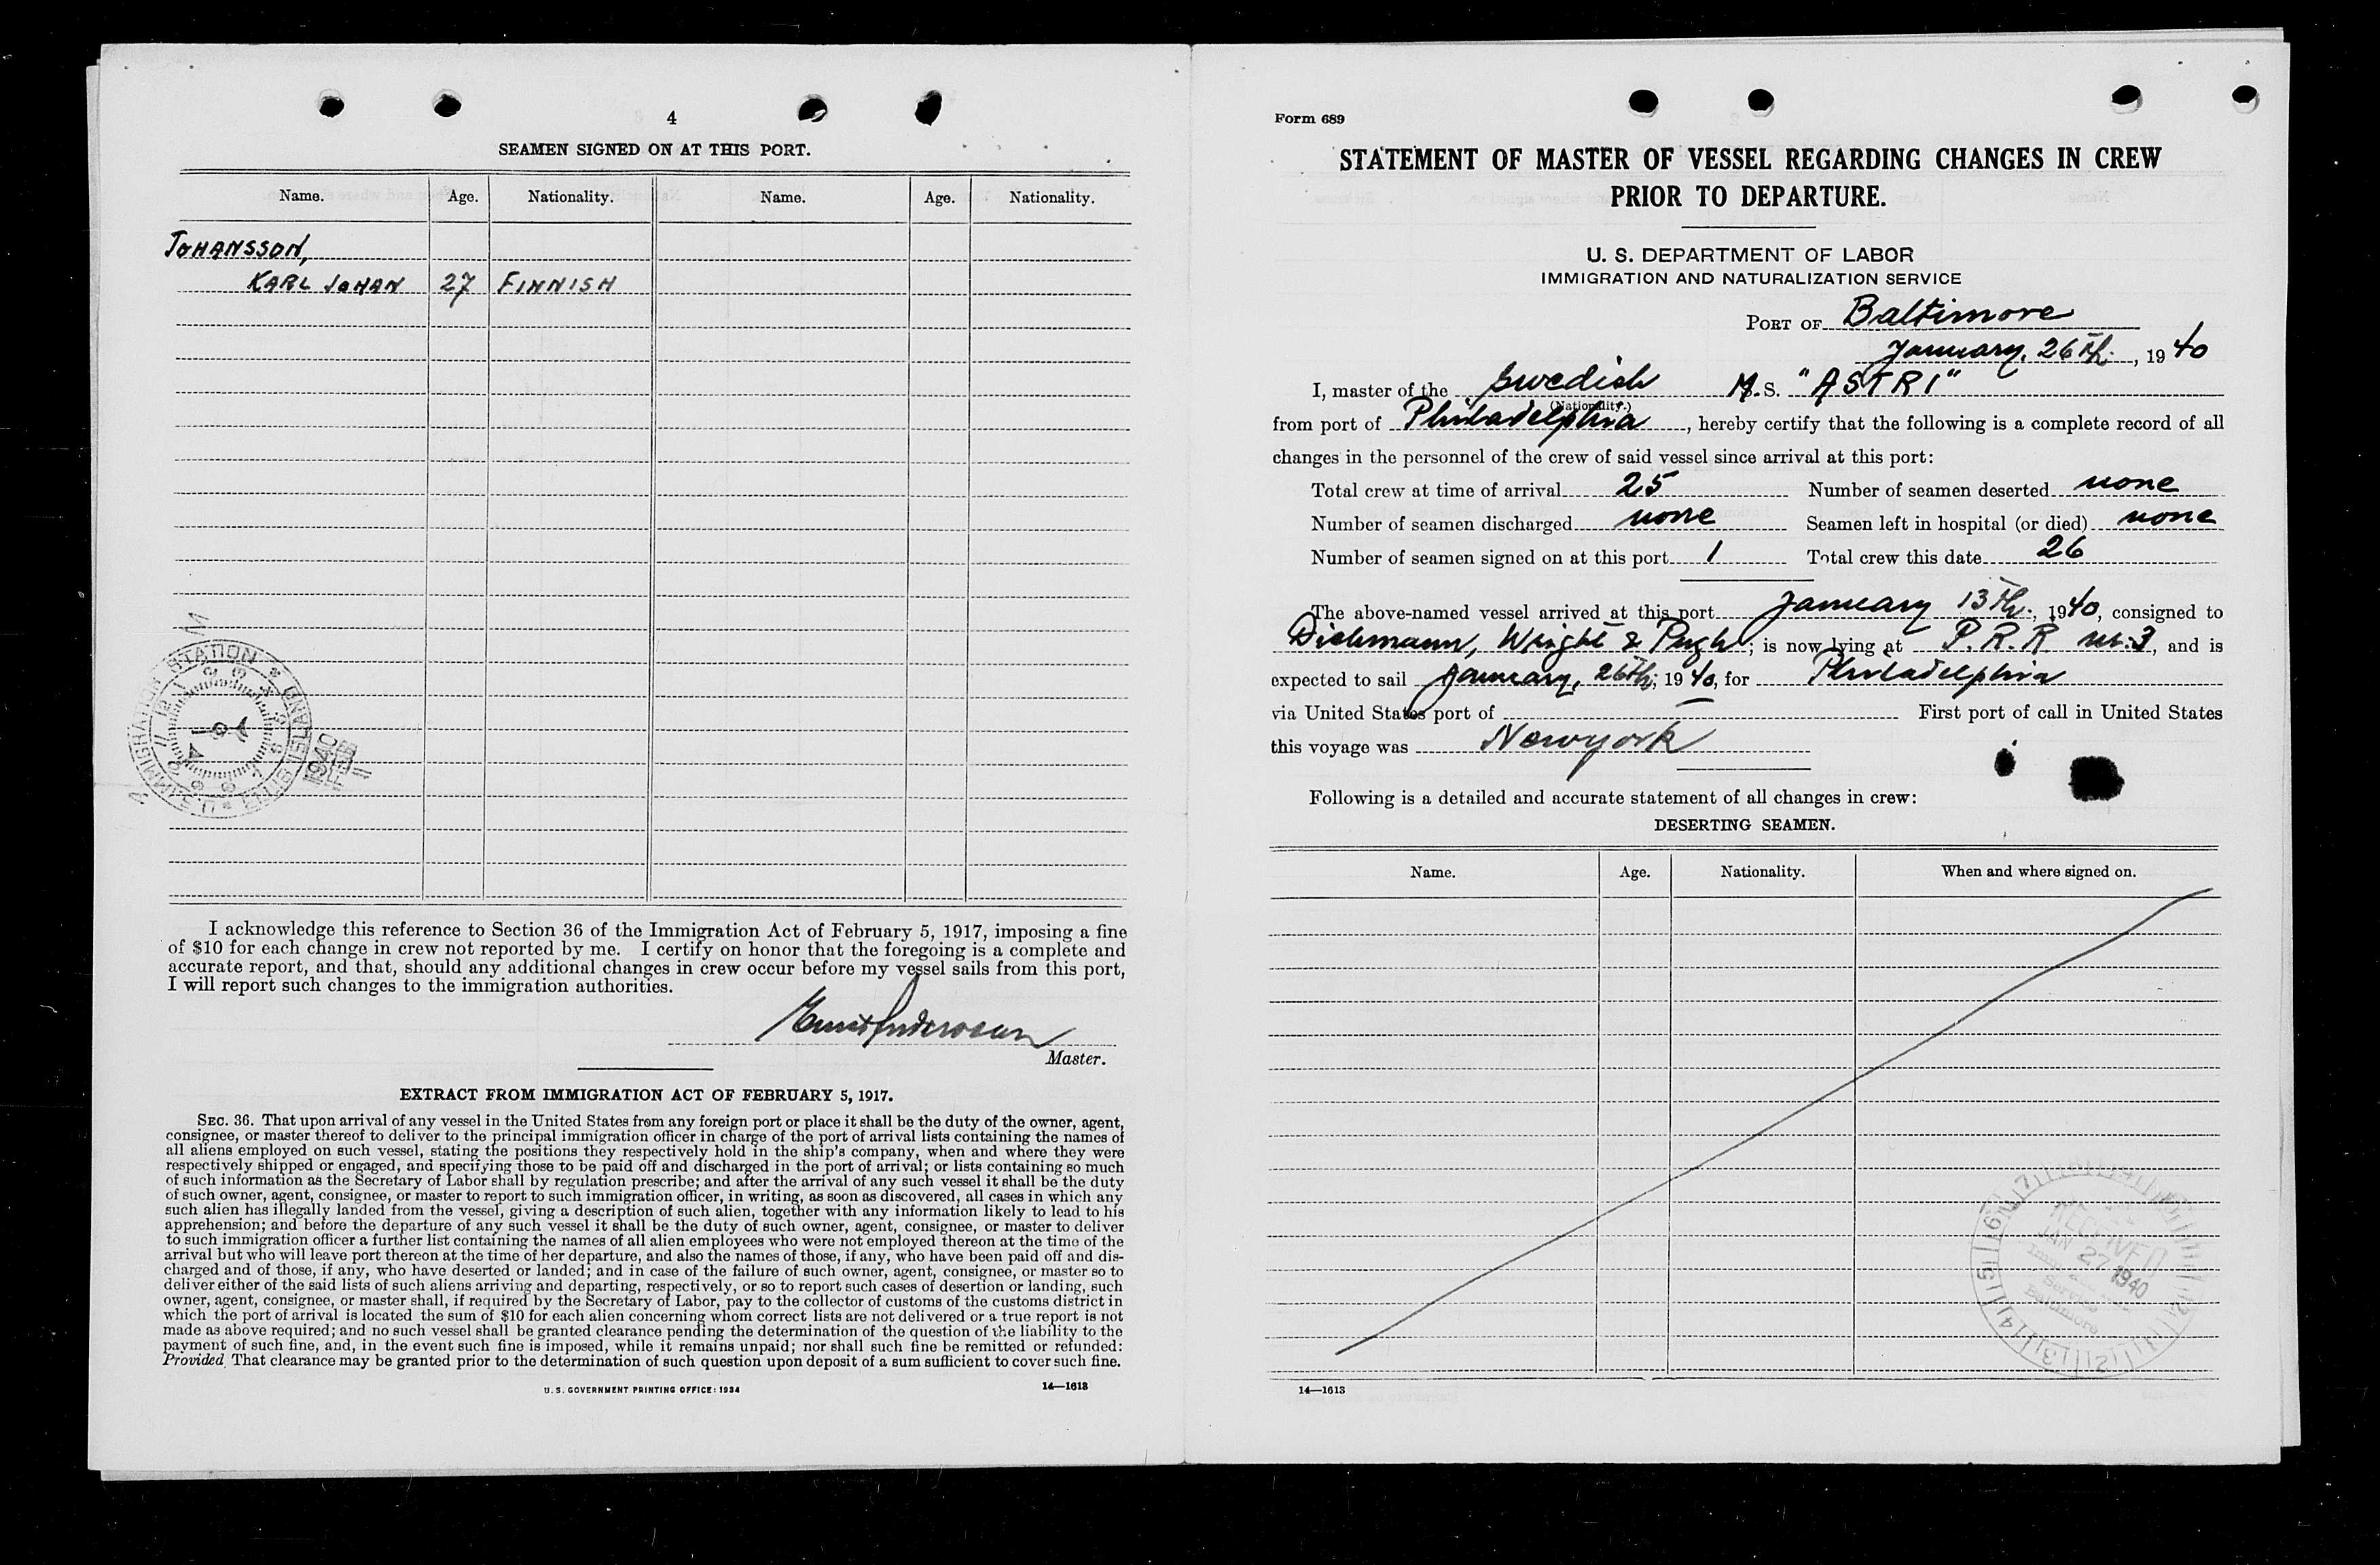 4
SEAMEN SIGNED ON AT THIS PORT.
Name. Age. Nationality. Name. Age. Nationality.
JOHANSSON,
KARL JOHAN 27 FINNISH
U.S. IMMIGRATION STATION * ELLIS ISLAND *
1940
FEB
I acknowledge this reference to Section 36 of the Immigration Act of February 5, 1917, imposing a fine
of $10 for each change in crew not reported by me. I certify on honor that the foregoing is a complete and
accurate report, and that, should any additional changes in crew occur before my vessel sails from this port,
I will report such changes to the immigration authorities.
Master.
EXTRACT FROM IMMIGRATION ACT OF FEBRUARY 5, 1917.
SEC. 36. That upon arrival of any vessel in the United States from any foreign port or place it shall be the duty of the owner, agent,
consignee, or master thereof to deliver to the principal immigration officer in charge of the port of arrival lists containing the names of
all aliens employed on such vessel, stating the positions they respectively hold in the ship's company, when and where they were
respectively shipped or engaged, and specifying those to be paid off and discharged in the port of arrival; or lists containing so much
of such information as the Secretary of Labor shall by regulation prescribe; and after the arrival of any such vessel it shall be the duty
of such owner, agent, consignee, or master to report to such immigration officer, in writing, as soon as discovered, all cases in which any
such alien has illegally landed from the vessel, giving a description of such alien, together with any information likely to lead to his
apprehension; and before the departure of any such vessel it shall be the duty of such owner, agent, consignee, or master to deliver
to such immigration officer a further list containing the names of all alien employees who were not employed thereon at the time of the
arrival but who will leave port thereon at the time of her departure, and also the names of those, if any, who have been paid off and dis-
charged and of those, if any, who have deserted or landed; and in case of the failure of such owner, agent, consignee, or master so to
deliver either of the said lists of such aliens arriving and departing, respectively, or so to report such cases of desertion or landing, such
owner, agent, consignee, or master shall, if required by the Secretary of Labor, pay to the collector of customs of the customs district in
which the port of arrival is located the sum of $10 for each alien concerning whom correct lists are not delivered or a true report is not
made as above required; and no such vessel shall be granted clearance pending the determination of the question of the liability to the
payment of such fine, and, in the event such fine is imposed, while it remains unpaid; nor shall such fine be remitted or refunded:
Provided, That clearance may be granted prior to the determination of such question upon deposit of a sum sufficient to cover such fine.
U. S. GOVERNMENT PRINTING OFFICE: 1934 14—1613
Form 689
STATEMENT OF MASTER OF VESSEL REGARDING CHANGES IN CREW
PRIOR TO DEPARTURE.
U. S. DEPARTMENT OF LABOR
IMMIGRATION AND NATURALIZATION SERVICE
PORT OF Baltimore
January, 26th., 1940
I, master of the Swedish M.S. "ASTRI"
(Nationality.)
from port of Philadelphia, hereby certify that the following is a complete record of all
changes in the personnel of the crew of said vessel since arrival at this port:
Total crew at time of arrival 25 Number of seamen deserted none
Number of seamen discharged none Seamen left in hospital (or died) none
Number of seamen signed on at this port 1 Total crew this date 26
The above-named vessel arrived at this port January 13th., 1940, consigned to
Dichmann, Wright & Pugh; is now lying at P.R.R nr. 3, and is
expected to sail January, 26th, 1940, for Philadelphia
via United States port of — First port of call in United States
this voyage was Newyork
Following is a detailed and accurate statement of all changes in crew:
DESERTING SEAMEN.
Name. Age. Nationality. When and where signed on.
RECEIVED
JAN 27 1940
Service
Baltimore
14—1613